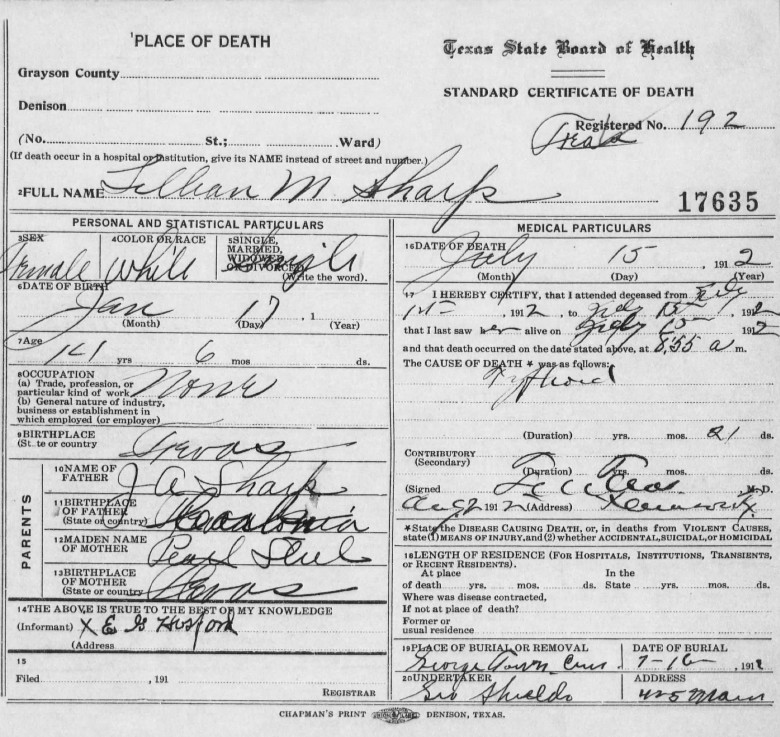 ¹PLACE OF DEATH
Texas State Board of Health
Grayson County
STANDARD CERTIFICATE OF DEATH
Denison
Registered No. 192
(No. St.; Ward)
(If death occur in a hospital or institution, give its NAME instead of street and number.)
2FULL NAME Lillian M Sharp
17635
PERSONAL AND STATISTICAL PARTICULARS
3SEX
4COLOR OR RACE
5SINGLE,
MARRIED,
WIDOWED
OR DIVORCED
(Write the word).
Female White Single
6DATE OF BIRTH
Jan 17 , 1
(Month) (Day) (Year)
7Age
yrs 6 mos ds.
8OCCUPATION
(a) Trade, profession, or
particular kind of work None
(b) General nature of industry,
business or establishment in
which employed (or employer)
9BIRTHPLACE
(State or country Texas
PARENTS
10NAME OF
FATHER J A Sharp
11BIRTHPLACE
OF FATHER
(State or country)
12MAIDEN NAME
OF MOTHER Pearl
13BIRTHPLACE
OF MOTHER
(State or country Texas
14THE ABOVE IS TRUE TO THE BEST OF MY KNOWLEDGE
(Informant) X E G Hosford
(Address
15
Filed , 191
REGISTRAR
MEDICAL PARTICULARS
16DATE OF DEATH
July 15 , 1912
(Month) (Day) (Year)
17 I HEREBY CERTIFY, that I attended deceased from July
1st 1912, to July 15 1912
that I last saw her alive on July 15 1912
and that death occurred on the date stated above, at 8,55 a m.
The CAUSE OF DEATH * was as follows:
Typhoid
(Duration) yrs. mos. 21 ds.
CONTRIBUTORY
(Secondary)
(Duration) yrs. mos. ds.
(Signed M. D.
1912 (Address)
*State the DISEASE CAUSING DEATH, or, in deaths from VIOLENT CAUSES,
state(1) MEANS OF INJURY, and (2) whether ACCIDENTAL, SUICIDAL, or HOMICIDAL
18LENGTH OF RESIDENCE (FOR HOSPITALS, INSTITUTIONS, TRANSIENTS,
OR RECENT RESIDENTS).
At place In the
of death yrs. mos. ds. State yrs. mos. ds.
Where was disease contracted,
If not at place of death?
Former or
usual residence
19PLACE OF BURIAL OR REMOVAL
George Town Cem
DATE OF BURIAL
7-16 , 1912
20UNDERTAKER
Geo Shields
ADDRESS
425 Main
CHAPMAN'S PRINT DENISON, TEXAS.